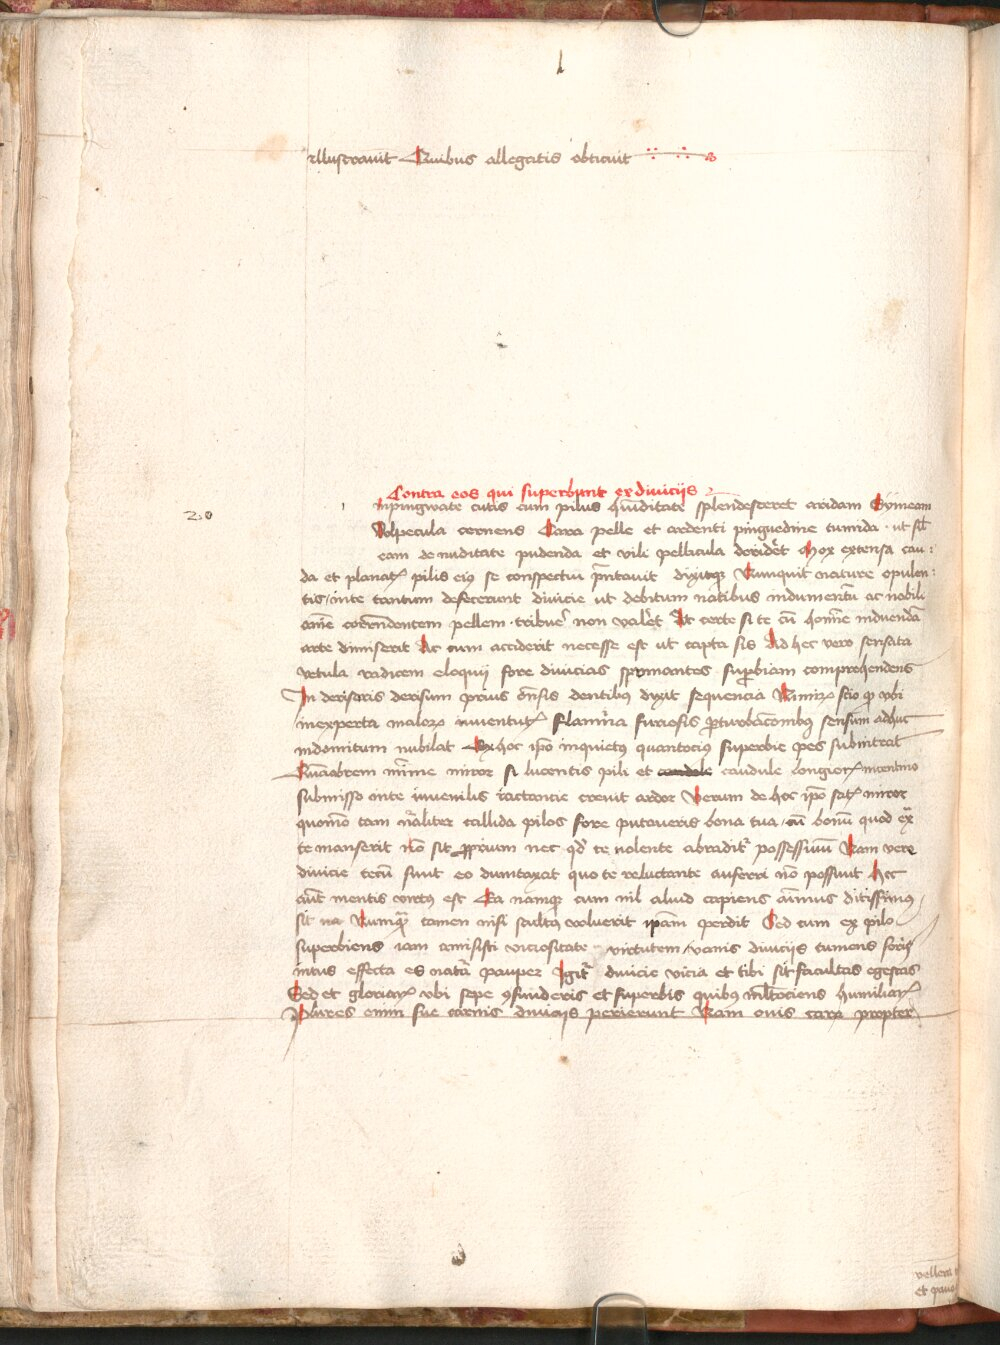 illustravit Quibus allegatis obticuit
Contra eos qui superbunt ex diviciis
20
Inpingwate cutis cum pilus qͥnditate splendesceret aridam Symeam
Volpecula cernens Cara pelle et ardenti pinguedine tumida · ut sil̄
eam de nuditate pudenda et vili pellicula derideret Mox extensa cau
da et planatꝭ pilis eiꝰ se conspectui p̄ntavit dixitqꝫ Nunquit nature opulen
tis inte tantum defecerunt divicie ut debitum natibus indumentū ac nobili
corr̄ndentem pellem · tribuer̄ non valet At certe si te cū hoīne induendā
arte dimiserit Ac cum acciderit necesse est ut capta sis Ad hec vero sensata
vetula radicem eloquij fore divicias spumantes suꝑbiam comprehendens
In deriseris derisum prius dentibꝰ dixit sequencia Nimiꝝ scio ꝙ ubi
inexperta maloꝝ iuventutꝭ flamīa furiosis ꝑturbacōnibꝰ sensum adhuc
indomitum nubilat Ex hoc ip̄o inquietꝰ quantociꝰ superbie pes subintrat
mīme miror si lucentis pili et caudule longiorꝭ incentivo
submisso inte iuvenilis iactancie crevit ardor Verum de hoc ip̄o satꝭ miror
quomō tam nāliter callida pilos fore putaveris bona tua · cū bonū quod ex̄
te manserit nō sit ꝓprium nec qd̄ te nolente abraditꝛ possessivū Nam vere
divicie tecū sunt eo dumtaxat quo te reluctante auferri nō possunt Hec
aūt mentis virtus est Ea namqꝫ cum nil aliud capiens aīmus ditissimꝰ
sit na Nunqꝫ tamen nisi stultꝰ voluerit ip̄am perdit Sed cum ex pilo
superbiens iam amisisti viciositate virtutem · vanis diviciis tumens foris
intus effecta es pauper Igitꝛ divicie vicia et tibi sit facultas egestas
Sed et gloriarꝭ ubi sepe ꝯfunderis et superbis quibꝰ mltociens humiliarꝭ
Plures enim sue carnis divicijs perierunt Nam ovis caro propter
vellera
et